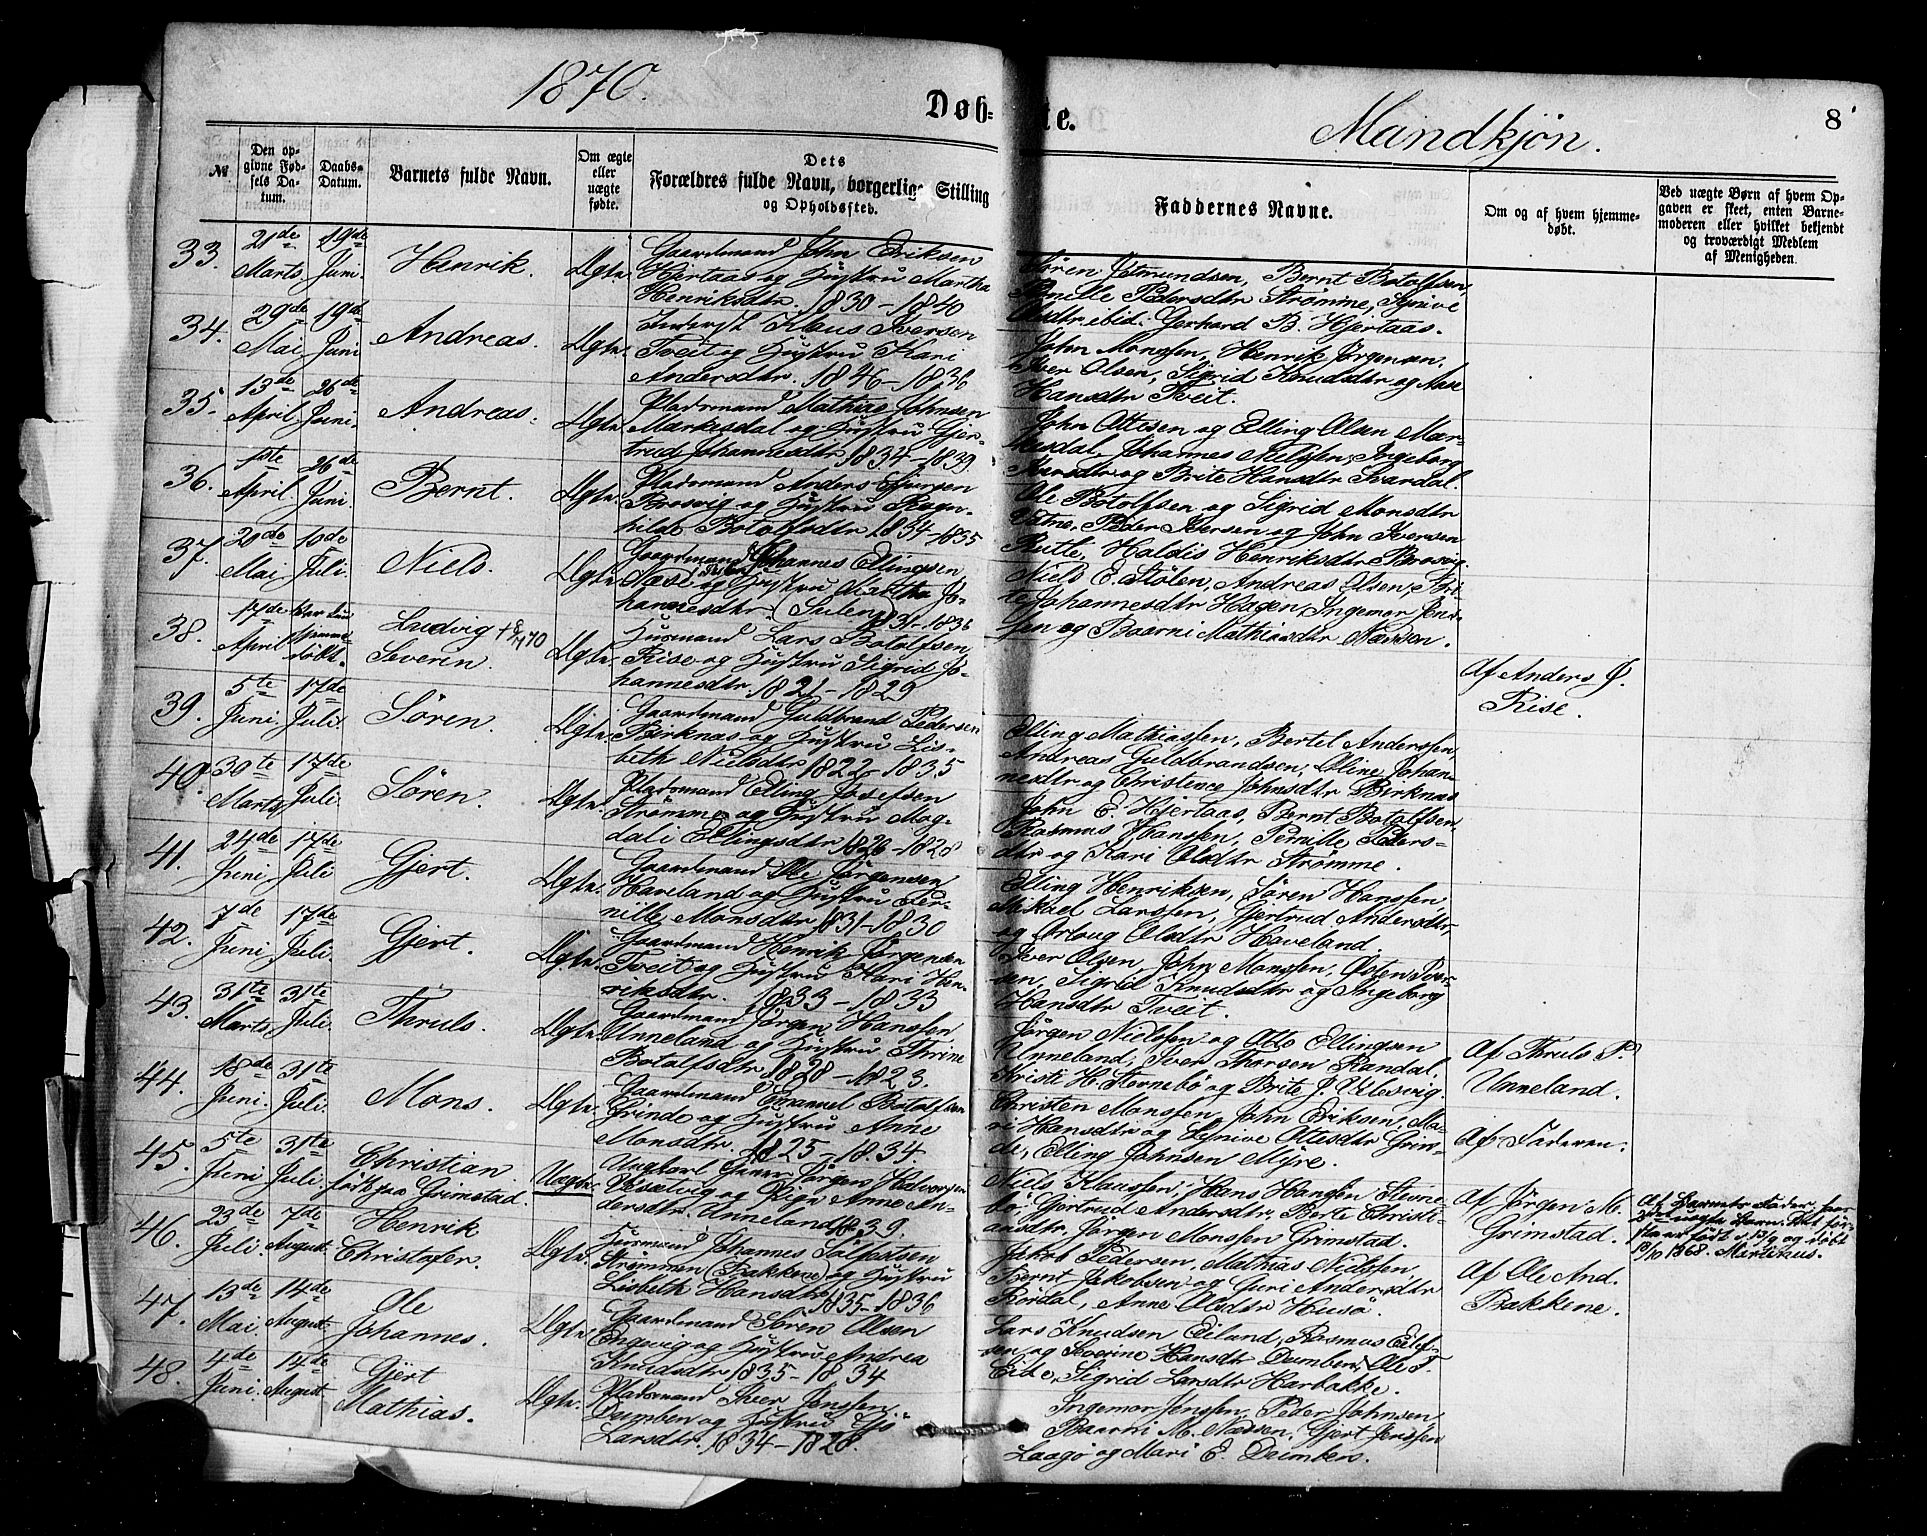 1870.
Døb-
te.
Mandkjøn.
8
№
Den op-
givne Fød-
sels Da-
tum.
Daabs-
Datum.
Barnets fulde Navn.
Om ægte
eller
uægte
fødte.
Dets
Forældres fulde Navn, borgerlige Stilling
og Opholdssted.
Faddernes Navne.
Om og af hvem hjemme-
døbt.
Ved uægte Børn af hvem Op-
gaven er skeet, enten Barne-
moderen eller hvilket bekjendt
og troværdigt Medlem
af Menigheden.
33.
21de
Marts
19de
Juni.
Henrik.
Ægte.
Gaardmand John Eriksen
Hjertaas og Hustru Martha
Henriksdtr. 1830-1840
Søren Jetmundsen, Bernt Botolfsen,
Pernille Pedersdtr Strømme, Synive
Olsdtr ibid. Gerhard B. Hjertaas.
34.
29de
Mai
19de
Juni
Andreas.
Ægte.
Inderst Klaus Iversen
Tveit og Hustru Kari
Andersdtr. 1846-1836
John Monssen, Henrik Jørgensen,
Iver Olsen, Sigrid Knudsdtr og Aase
Hansdtr Tveit.
35.
13de
April
26de
Juni.
Andreas.
Ægte.
Pladsmand Mathias Johnsen
Mærkesdal og Hustru Gjer-
trud Johannesdtr 1834-1839.
John Ottesen og Elling Olsen Mær-
kesdal, Johannes Nielssen, Ingeborg
og Brite Hansdtr Svardal.
36.
1ste
April.
26de
Juni
Bernt.
Ægte.
Pladsmand Anders
Brosvig og Hustru Ragn-
hilde Botolfsdtr 1834-1835
Ole Botolfsen og Sigrid Monsdtr
Vatne, Peder Iversen og John Iversen
Rutle, Haldis Henriksdtr Brosvig.
37.
20de
Mai
10de
Juli.
Niels.
Ægte.
Gaardmand Johannes Ellingsen
Næs og Hustru Martha Jo-
hannesdtr (Sulen) 1831-1836
Niels E. Stølen, Andreas Olsen, Bri-
te Johannesdtr Hagen, Ingemor Jens-
sen og Baarni Mathiasdtr Nævsen.
38.
17de
April
Kun
hjemme-
døbt.
Ludvig
Severin.
Ægte.
Husmand Lars Botolfsen
Rise og Hustru Sigrid Jo-
hannesdtr. 1821-1829
Af Anders J.
Rise.
39.
5te
Juni.
17de
Juli.
Søren.
Ægte.
Gaardmand Guldbrand Pedersen
Birknæs og Hustru Lis-
beth Nielsdtr 1822-1835
Elling Mathiassen, Bertel Anderssen,
Andreas Guldbrandsen, Oline Johan-
nesdtr og Christence Johnsdtr Birknæs
40.
30te
Marts
17de
Juli.
Søren.
Ægte.
Pladsmand Elling Josefsen
Strømme og Hustru Mag-
dali Ellingsdtr 1826-1828
John E. Hjertaas, Bernt Botolfsen
Rasmus Hanssen, Pernille Peders-
dtr og Kari Olsdtr Strømme.
41.
24de
Juni.
17de
Juli
Gjert.
Ægte.
Gaardmand Ole Jørgensen
Haveland og Hustru Per-
nille Monsdtr 1831-1830
Elling Henriksen, Søren Hanssen,
Mikael Larssen, Gjertrud Andersdtr
og Orloug Olsdtr Haveland.
42.
7de
Juni
17de
Juli.
Gjert.
Ægte.
Gaardmand Henrik Jørgensen
Tveit og Hustru Kari Hen-
riksdtr. 1833-1833
Iver Olsen, John Monssen, Østen Iver-
sen, Sigrid Knudsdtr og Ingeborg
Hansdtr Tveit.
43.
31te
Marts
31te
Juli.
Thruls.
Ægte.
Gaardmand Jørgen Hanssen
Unneland og Hustru Thrine
Botolfsdtr 1828-1823.
Jørgen Nielssen og Otto Ellingsen
Unneland, Iver Thorsen Randal.
Kristi H. Stornebø og Brite J. Ulesvig.
Af Thruls P.
Unneland.
44.
18de
Juni.
31te
Juli.
Mons.
Ægte.
Gaardmand Emanuel Botolfsen
Grinde og Hustru Anne
Monsdtr 1825-1834
Christen Monssen, John Eriksen, Ma-
ri Hansdtr og Synive Ottesdtr Grin-
de, Elling Johnsen Myre.
Af Faderen.
45.
5te
Juni
31te
Juli.
Christian
født paa Grimstad.
Uægte.
Ungkarl Jørgen Halvorsen
og Pige Anne An-
dersdtr. Unneland 1839.
Niels Klaussen, Hans Hanssen Steine-
bø, Gertrud Andersdtr, Berte Christi-
ansdtr, Jørgen Monssen Grimstad.
Af Jørgen M.
Grimstad.
Af Barnets Fader, har
uægte Barn. Det før-
ste er født 13/9 og døbt
18/10 1868. Martinus.
46.
23de
Juli
7de
August
Henrik
Christofer.
Ægte.
Husmand Johannes Salfestsen
Strømmen (Bakkene) og Hustru
Lisbeth Hansdtr 1835-1836
Jakob Pedersen, Mathias Nielsen,
Bernt Jakobsen og Guri Andersdtr
Rørdal, Anne Olsdtr Husø.
Af Ole And.
Bakkene.
47.
13de
Mai.
14de
August
Ole
Johannes.
Ægte.
Gaardmand Søren Olsen
Engevig og Hustru Andrea
Knudsdtr 1835-1834
Lars Knudsen Eiland, Rasmus Eilef-
sen og Severine Hansdtr Dumben, Ole T.
Eide, Sigrid Larsdtr Harbakke.
48.
4de
Juni.
14de
August
Gjert
Mathias.
Ægte.
Pladsmand Iver Jenssen
Dumben og Hustru Sjø
Larsdtr. 1834-1828.
Ingemor Jenssen, Peder Johnsen,
Baarni M. Nævsen, Gjert Jenssen
Laagø og Mari E. Dumben.